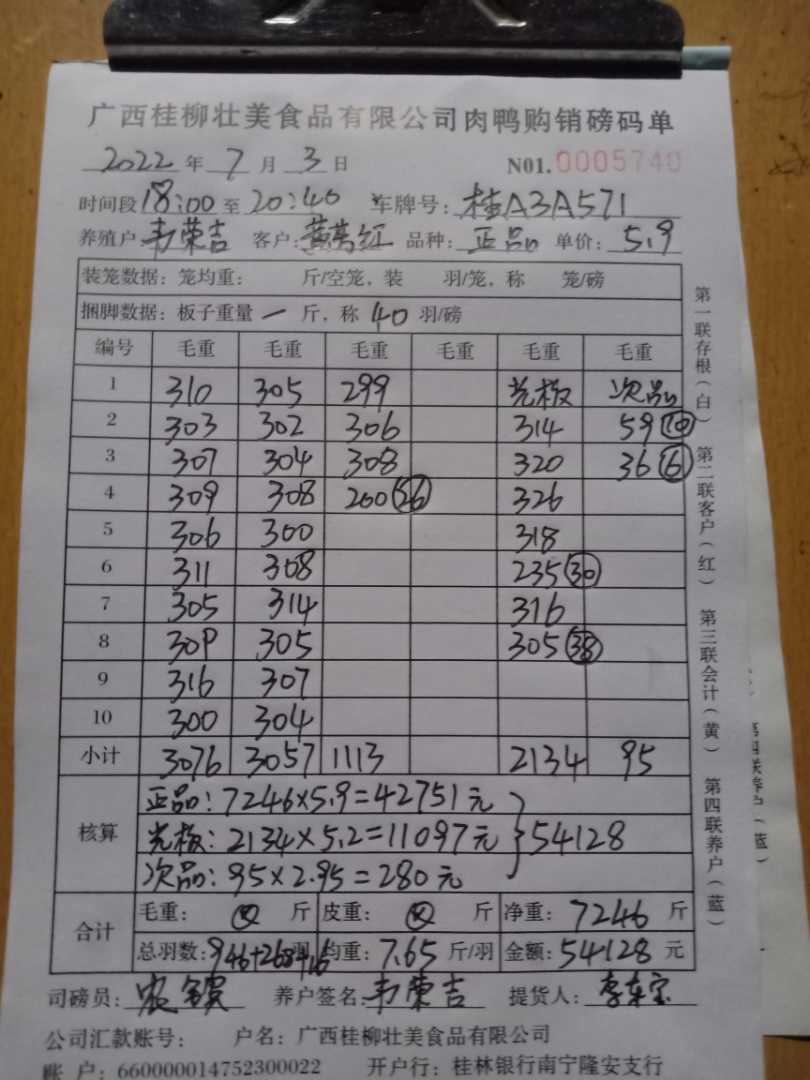 广西桂柳壮美食品有限公司肉鸭购销磅码单
2022年7月3日 N01.0005740
时间段18:00至20:40 车牌号:桂A3A571
养殖户韦荣吉 客户:黄万红 品种:正品 单价:5.9
装笼数据:笼均重: 斤/空笼,装 羽/笼,称 笼/磅
捆脚数据:板子重量一斤,称40羽/磅
编号 毛重 毛重 毛重 毛重 毛重 毛重
1 310 305 299 光板 次品
2 303 302 306 314 59⑩
3 307 304 308 320 36⑥
4 309 308 200㉖ 326
5 306 300 318
6 311 308 235㉚ 
7 305 314 316
8 309 305 305㊳
9 316 307
10 300 304
小计 3076 3057 1113 2134 95
核算 正品:7246×5.9=42751元
光板:2134×5.2=11097元 }54128
次品:95×2.95=280元
合计 毛重: 斤 皮重: 斤 净重:7246斤
总羽数:946+268+16羽 均重:7.65斤/羽 金额:54128元
司磅员: 养户签名:韦荣吉 提货人:李东宝
公司汇款账号: 户名:广西桂柳壮美食品有限公司
账 户:660000014752300022 开户行:桂林银行南宁隆安支行
第一联存根(白)
第二联客户(红)
第三联会计(黄)
第四联养户(蓝)
第四联养户(蓝)